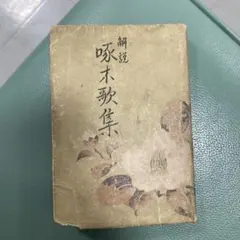 解説
啄木歌集